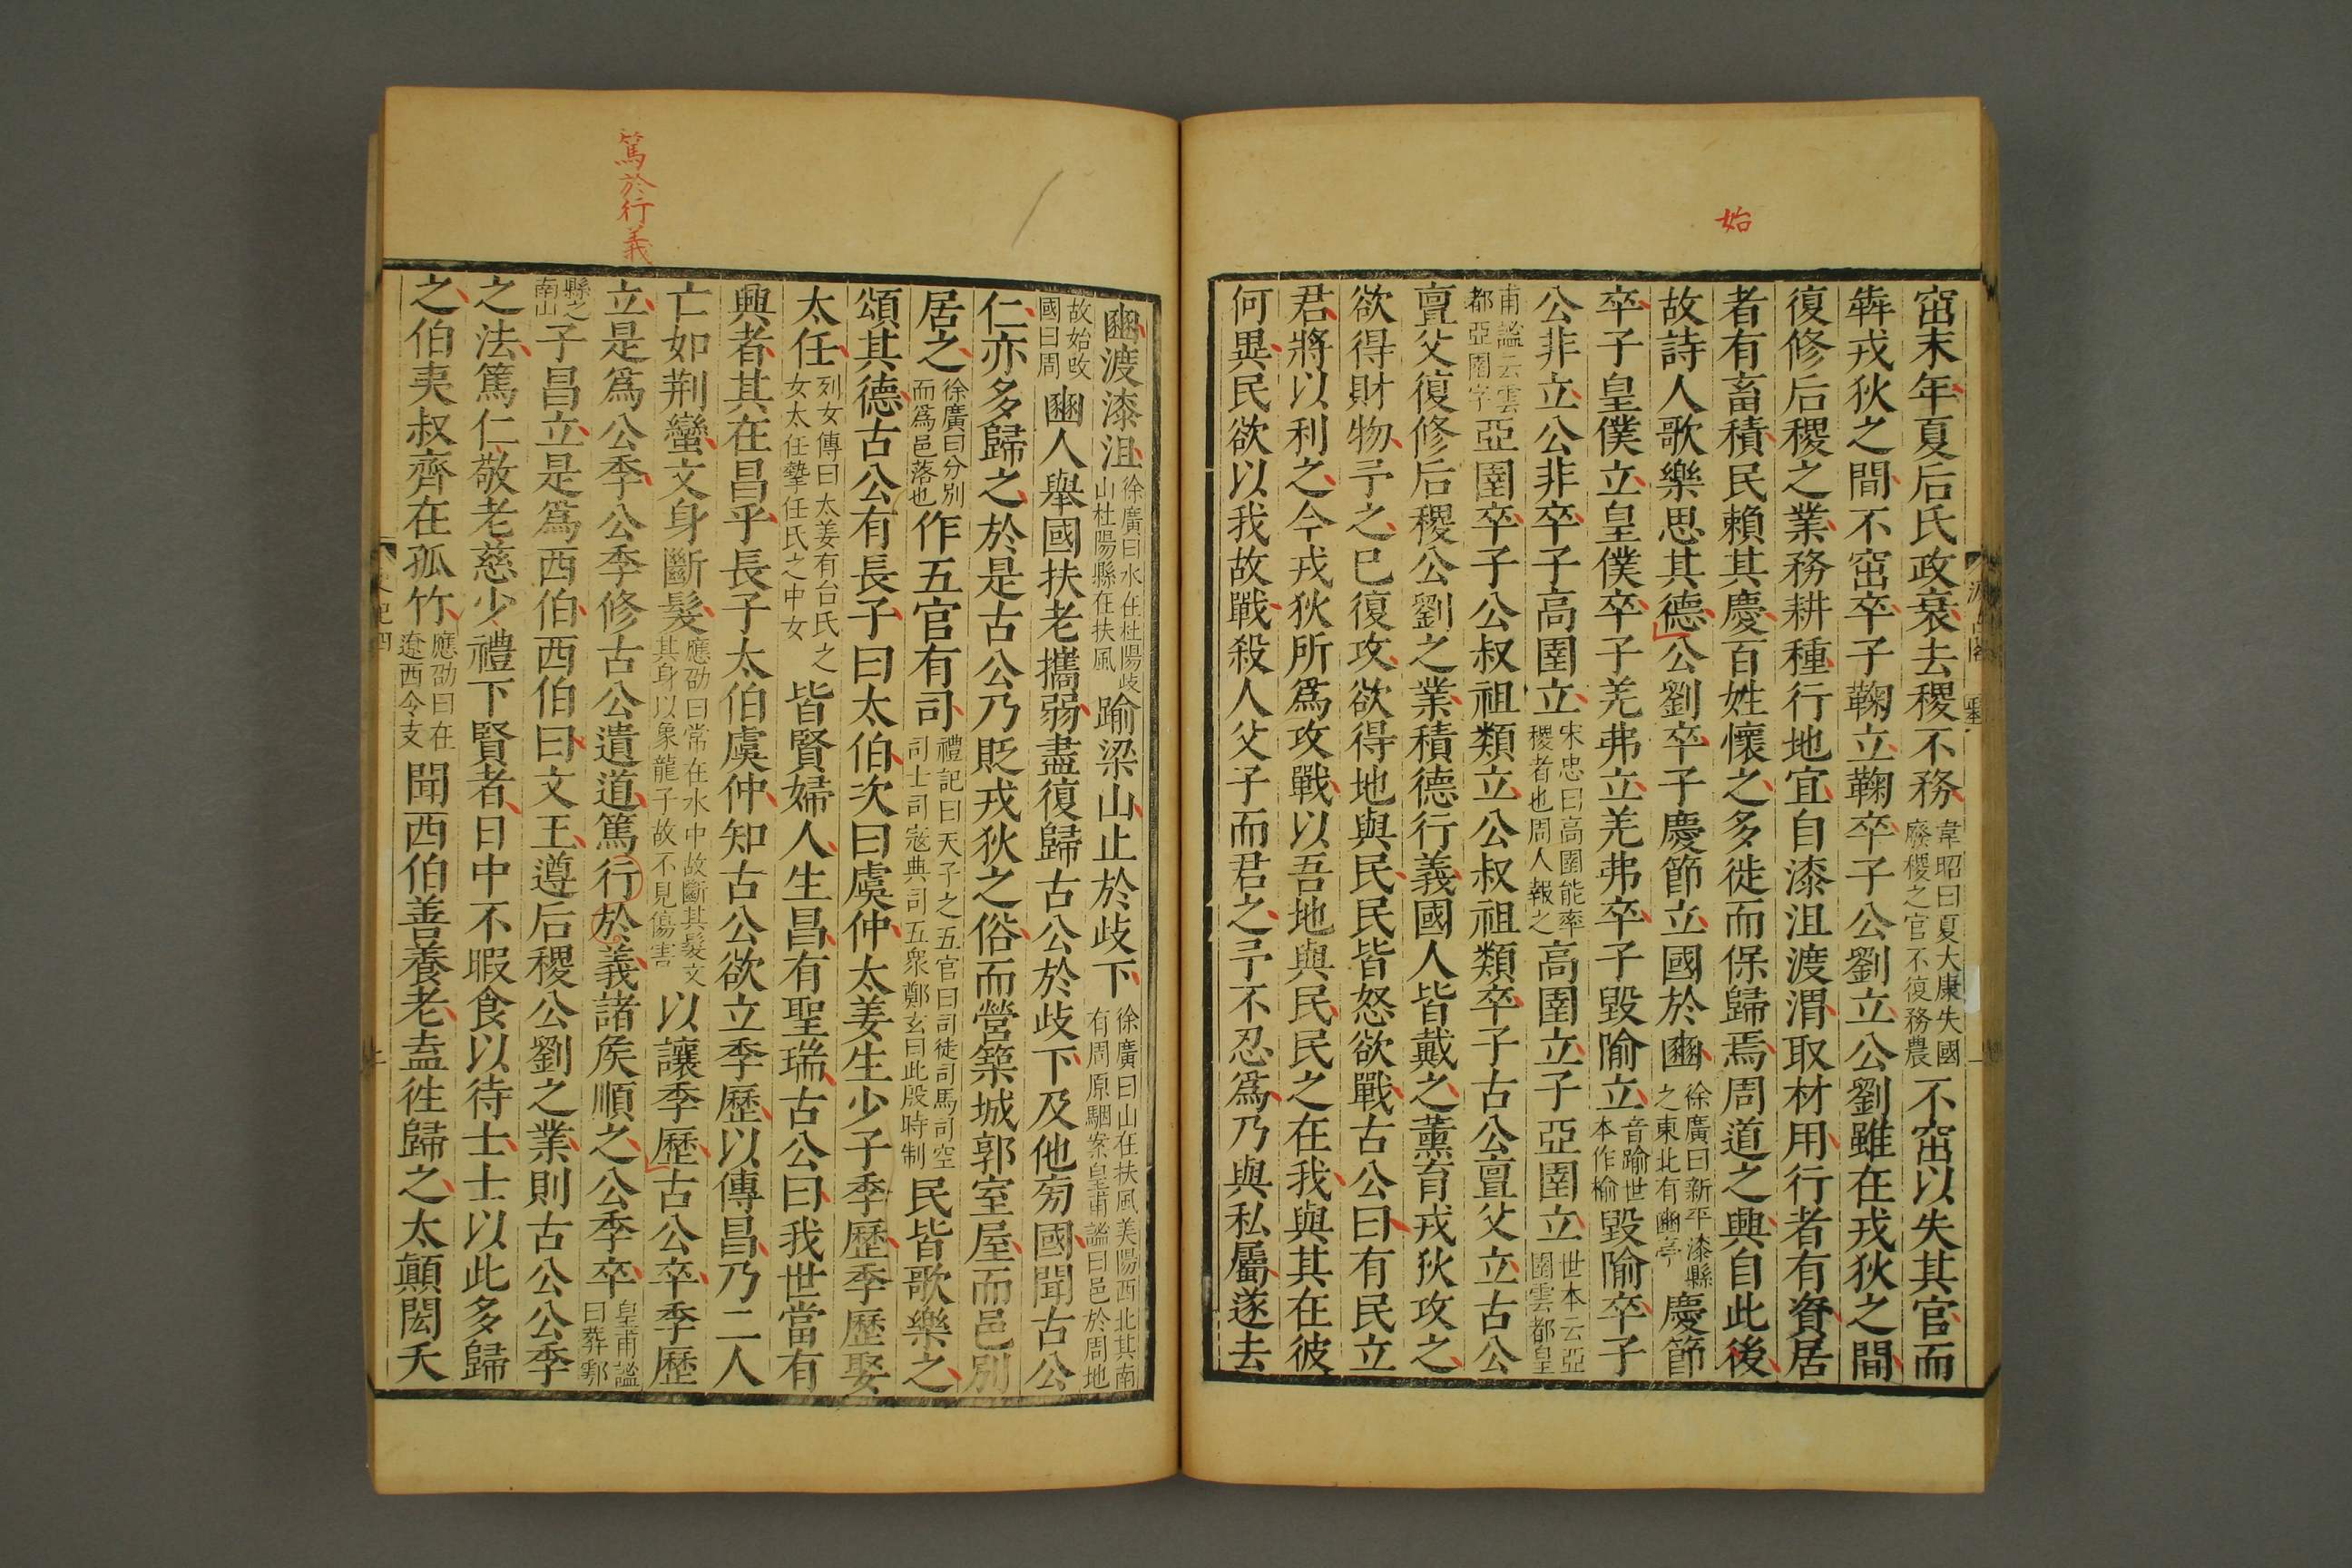 始
窋末年夏后氏政衰去稷不務韋昭曰夏大康失國廢稷之官不復務農不窋以失其官而
犇戎狄之間不窋卒子鞠立鞠卒子公劉立公劉雖在戎狄之間
復修后稷之業務耕種行地宜自漆沮渡渭取材用行者有資居
者有畜積民賴其慶百姓懷之多徙而保歸焉周道之興自此後
故詩人歌樂思其德公劉卒子慶節立國於豳徐廣曰新平漆縣之東北有豳亭慶節
卒子皇僕立皇僕卒子羌弗立羌弗卒子毀隃立音踰世本作榆毀隃卒子
公非立公非卒子高圉立宋忠曰高圉能率稷者也周人報之高圉立子亞圉立世本云亞圉雲都皇
甫謐云雲都亞圉字亞圉卒子公叔祖類立公叔祖類卒子古公亶父立古公
亶父復修后稷公劉之業積德行義國人皆戴之薰育戎狄攻之
欲得財物予之已復攻欲得地與民民皆怒欲戰古公曰有民立
君將以利之今戎狄所爲攻戰以吾地與民民之在我與其在彼
何異民欲以我故戰殺人父子而君之予不忍爲乃與私屬遂去
豳渡漆沮徐廣曰水在杜陽歧山杜陽縣在扶風踰梁山止於歧下徐廣曰山在扶風美陽西北其南有周原駰案皇甫謐曰邑於周地
故始改國曰周豳人舉國扶老攜弱盡復歸古公於歧下及他旁國聞古公
仁亦多歸之於是古公乃貶戎狄之俗而營築城郭室屋而邑別
居之徐廣曰分別而爲邑落也作五官有司禮記曰天子之五官曰司徒司馬司空司士司寇典司五衆鄭玄曰此殷時制民皆歌樂之
頌其德古公有長子曰太伯次曰虞仲太姜生少子季歷季歷娶
太任列女傳曰太姜有台氏之女太任摯任氏之中女皆賢婦人生昌有聖瑞古公曰我世當有
興者其在昌乎長子太伯虞仲知古公欲立季歷以傳昌乃二人
亡如荆蠻文身斷髮應劭曰常在水中故斷其髮文其身以象龍子故不見傷害以讓季歷古公卒季歷
篤於行義
立是爲公季公季修古公遺道篤行於義諸矦順之公季卒皇甫謐曰葬鄠
縣之南山子昌立是爲西伯西伯曰文王遵后稷公劉之業則古公公季
之法篤仁敬老慈少禮下賢者日中不暇食以待士士以此多歸
之伯夷叔齊在孤竹應劭曰在遼西令支聞西伯善養老盍徃歸之太顛閎夭